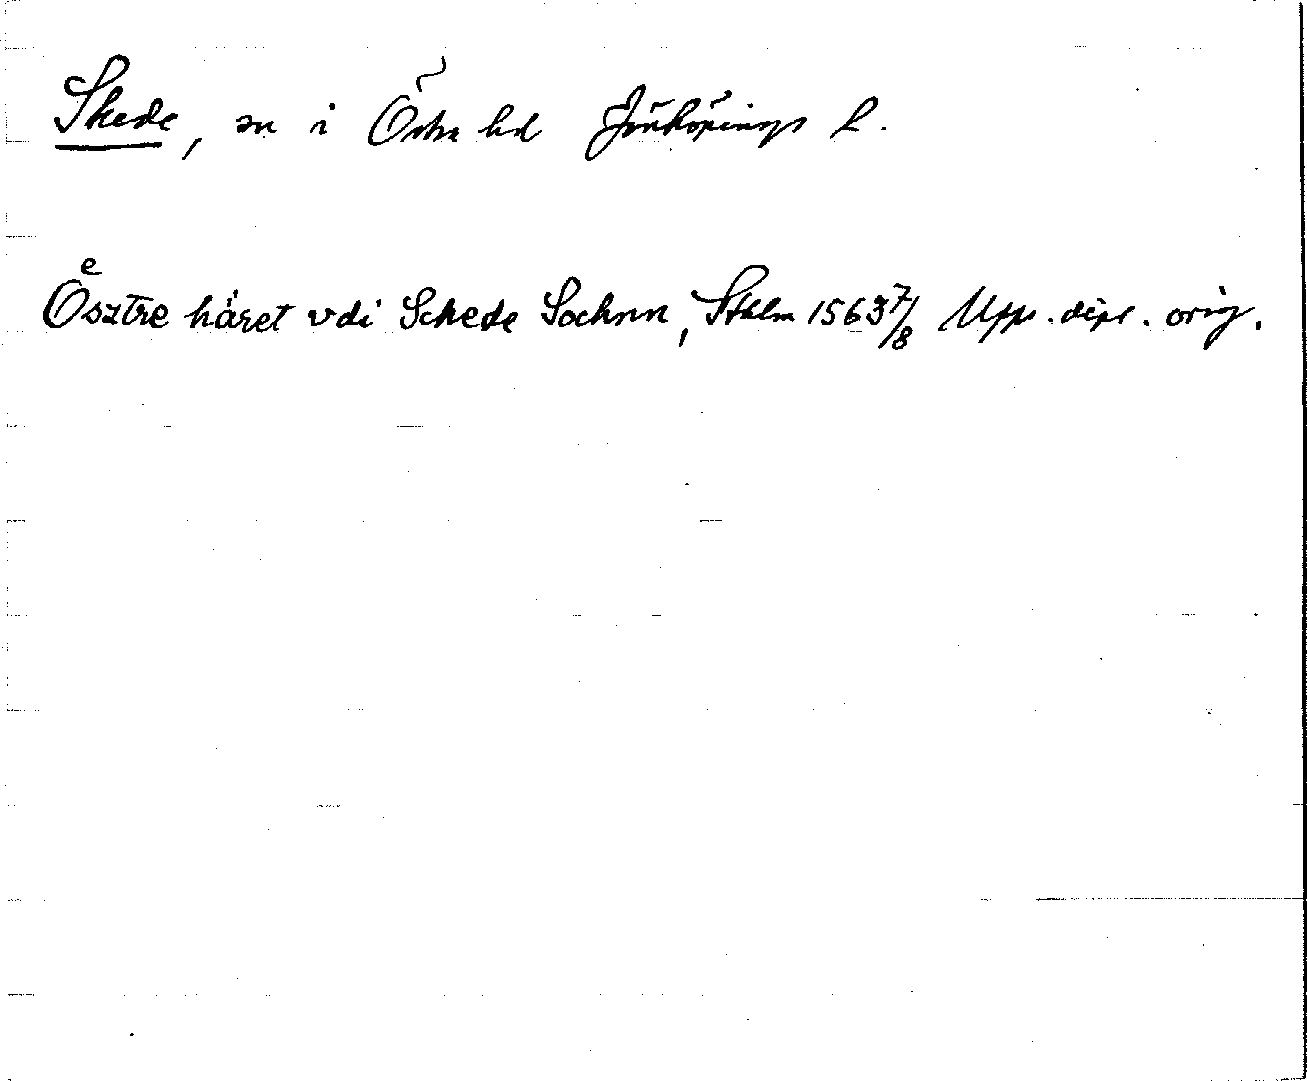 Skede, sn i Östra hd Jönköpings l.
Oͤsztre häret vdi Schede Sochnn, Sthlm 1563 7/8 Upps. dipl. orig.